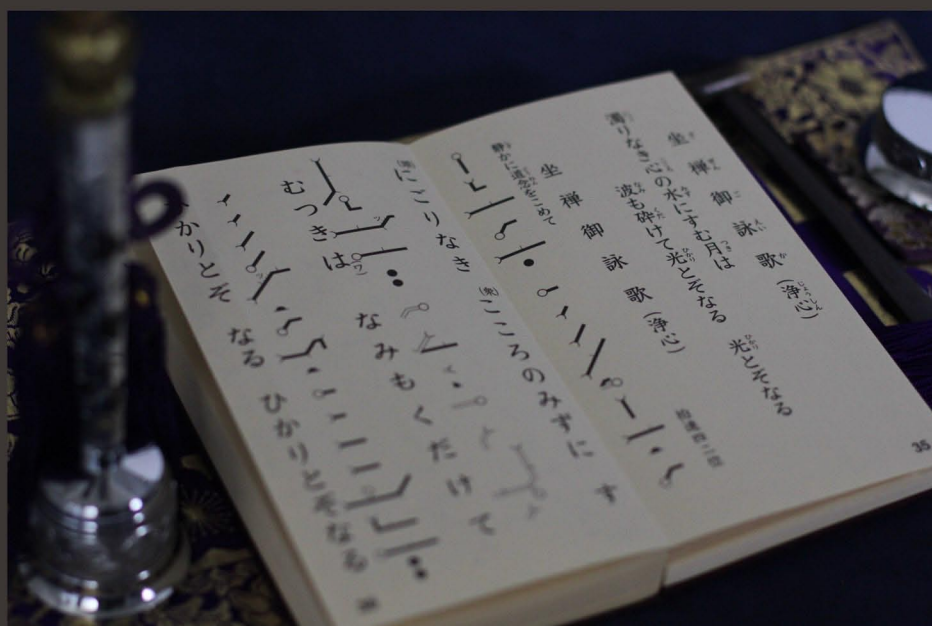 坐禅御詠歌(浄心)
濁りなき心の水にすむ月は
波も砕けて光とそなる 光とそなる
坐禅御詠歌(浄心)
静かに道念をこめて
にごりなき こころのみずに す
むつきは なみもくだけて
かりとそ なる ひかりとそなる
35